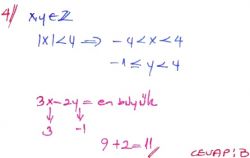 4// x,y∈ℤ
|x|<4 ⟹ -4<x<4
-1≤y<4
3x-2y = en büyük
↓ ↓
3 -1
9+2=11//
CEVAP: B